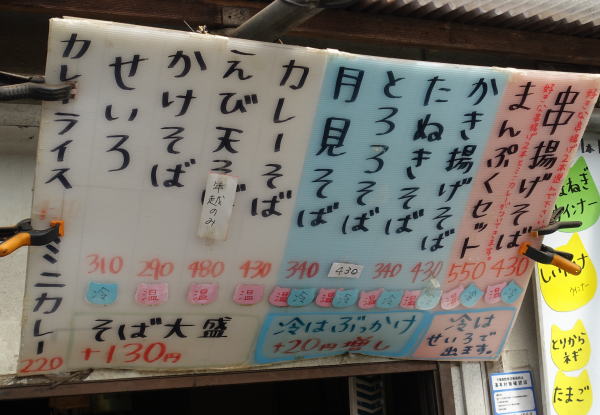 串揚げそば
まんぷくセット
かき揚げそば
たぬきそば
とろろそば
月見そば
カレーそば
えび天そば
年越のみ
かけそば
せいろ
カレーライス
ミニカレー
220
310 290 480 430 340 430 340 430 550 430
冷 温 温 温 温 冷 温 冷 温 冷 温 冷 温 冷 温 冷
そば大盛
+130円
冷はぶっかけ
+20円増し
冷は
せいろで
出ます。
ねぎ
ウィンナー
しいたけ
ウィンナー
とりから
ネギ
たまご